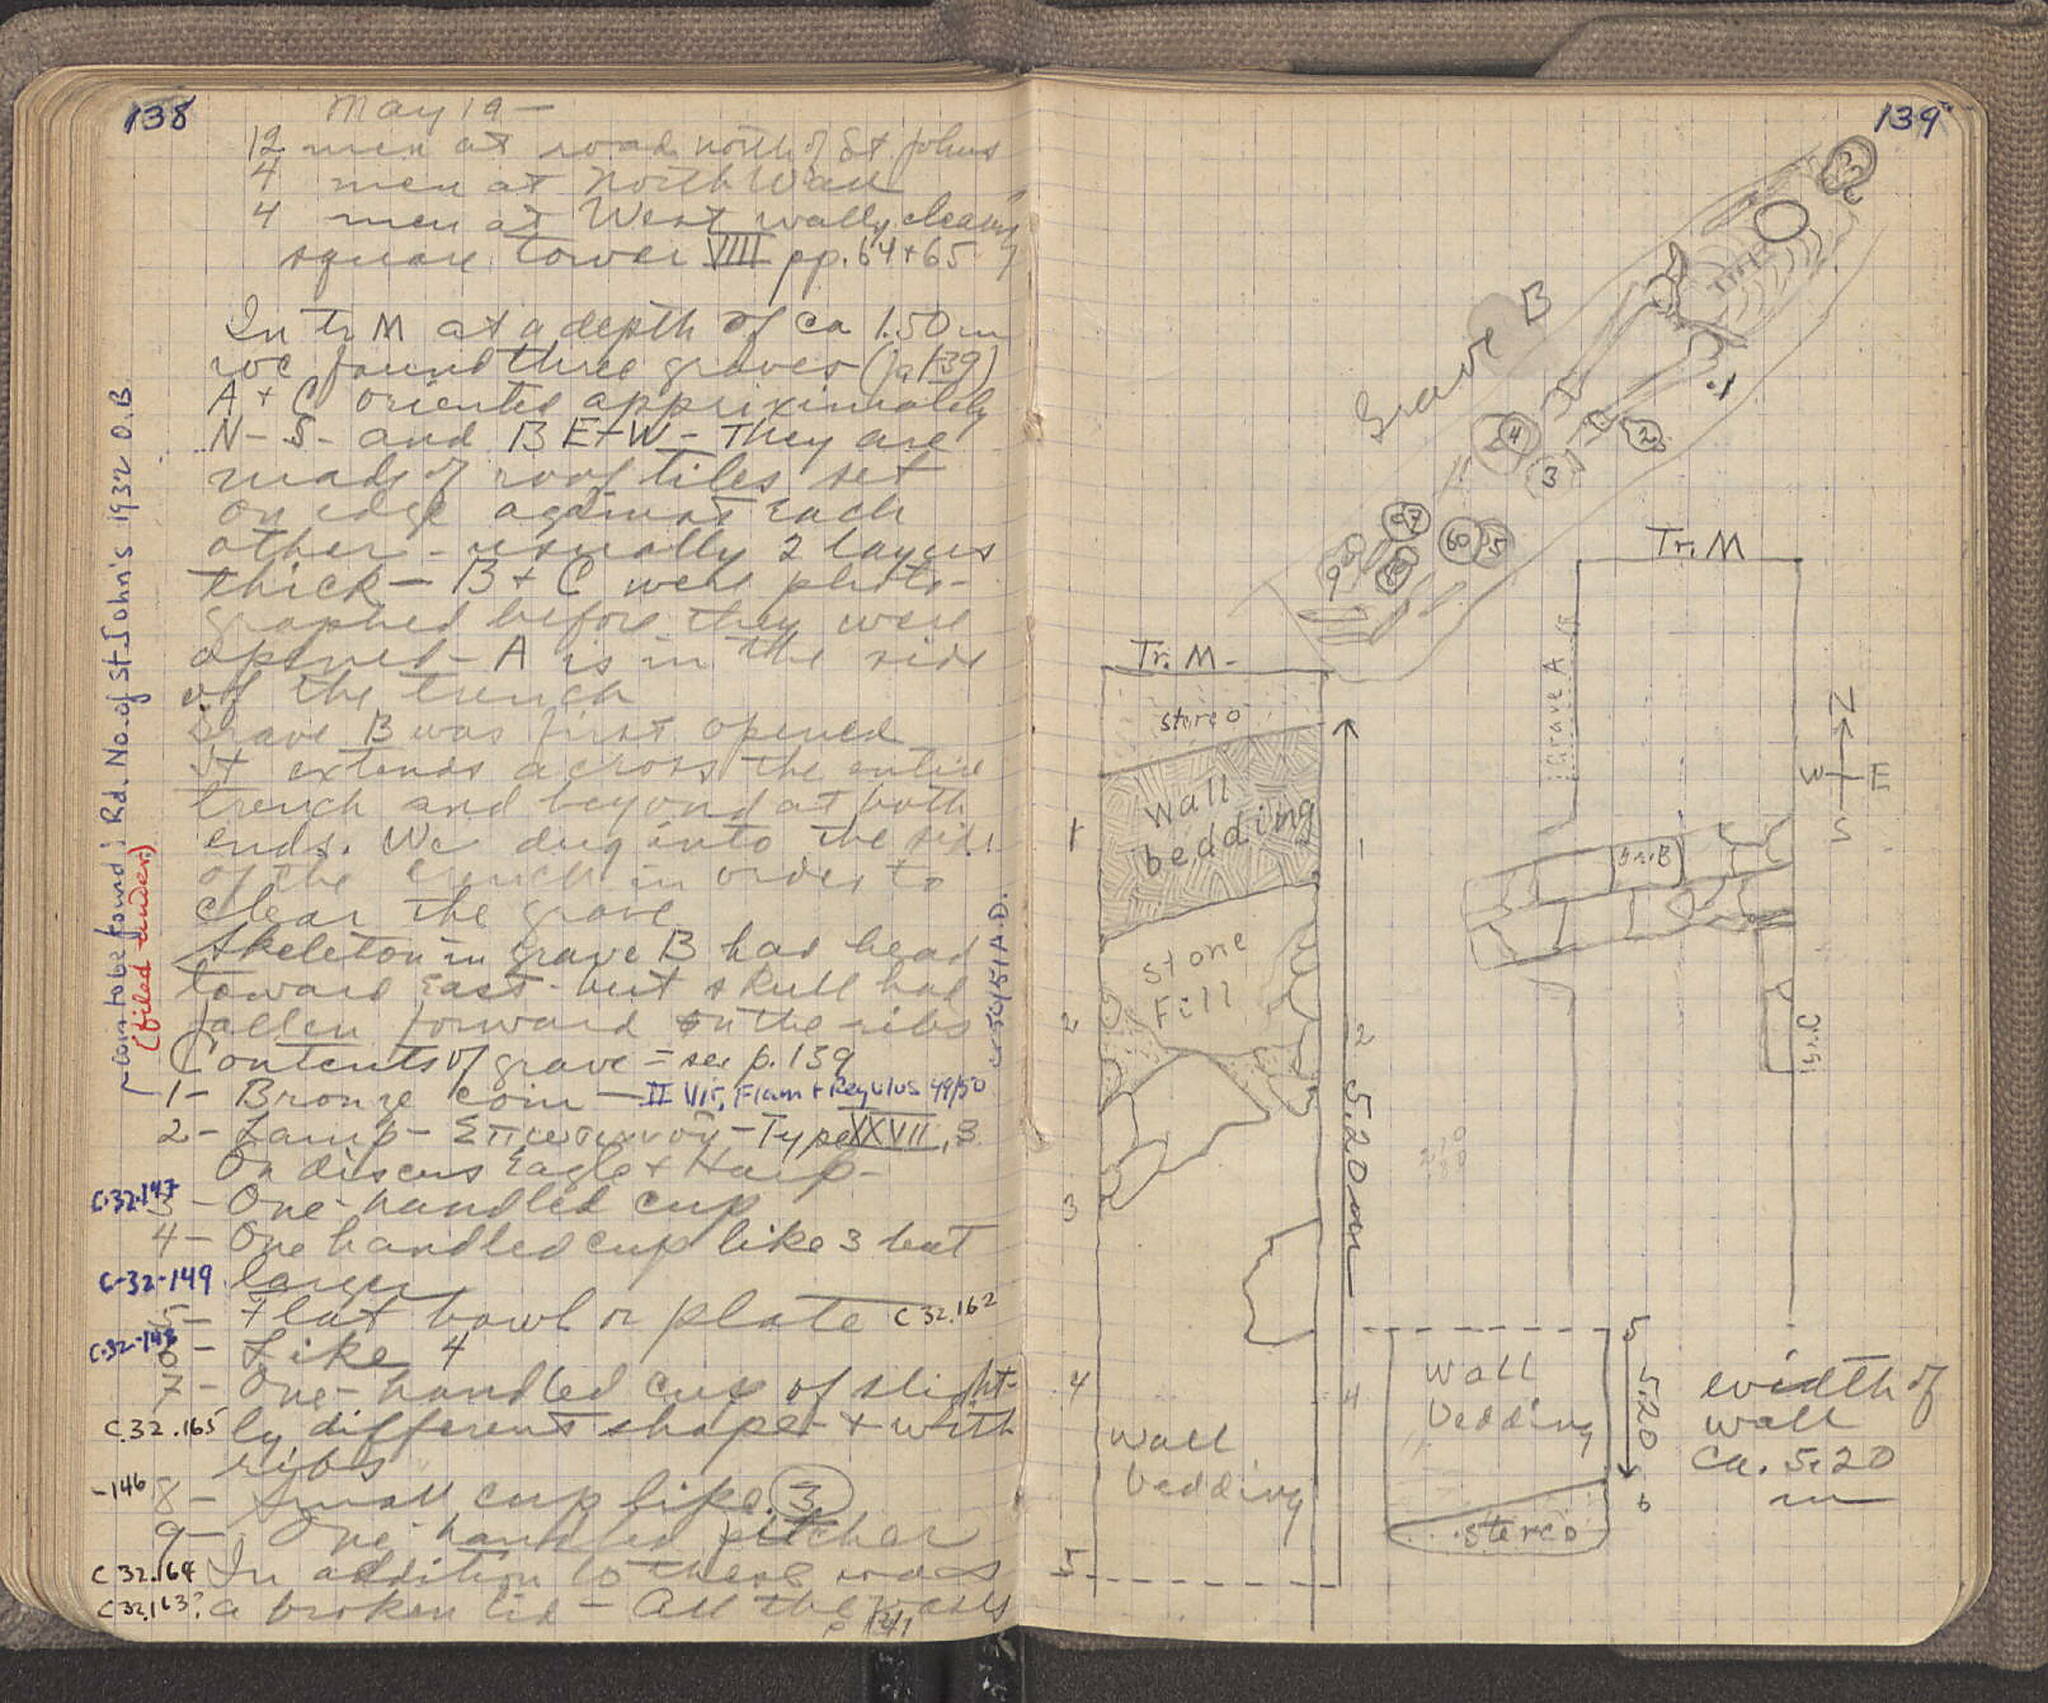 138
May 19 -
12 men at road north of St. Johns
4 men at North Wall
4 men at West wall, cleaning
square tower VIII pp. 64 + 65
In tr M at a depth of ca 1.50 m
we found three graves (p 139)
A + C oriented approximately
N - S - and B E + W - They are
made of roof tiles set
on edge against each
other - usually 2 layers
thick - B + C were photo-
graphed before they were
opened - A is in the side
of the trench
Grave B was first opened
It extends across the entire
trench and beyond at both
ends. We dug into the side
of the trench in order to
clear the grave
Skeleton in grave B had head
toward East - but skull had
fallen forward on the ribs
Contents of grave = see p. 139
1 - Bronze coin - II Vir, Flam + Regulus 49/50
or 50/51 A.D.
2 - Lamp - Type XXVII, 3
On discus Eagle + Harp -
C-32-147
3 - One-handled cup
4 - One handled cup like 3 but
C-32-149 larger
5 - Flat bowl or plate C 32.162
C-32-148
6 - Like 4
7 - One-handled cup of slight-
C.32.165 ly different shape + with
ribs
-146 8 - Small cup like 3
9 - One-handled pitcher
C 32.164 In addition to these was
C 32.163? a broken lid - All the vases
p 141
coin to be found: Rd. No. of St. John's 1932 O.B
(filed under:)
139
Grave B
1
2
4
3
7
6
5
8
9
Tr. M
Grave A
N
W E
S
Gr. B
Gr. C
Tr. M -
stereo
Wall
bedding
1
1
Stone
Fill
2
2
5.20 m
3
4
4
Wall
bedding
5
5
Wall
bedding
5.20
6
stereo
width of
wall
Ca. 5.20
m